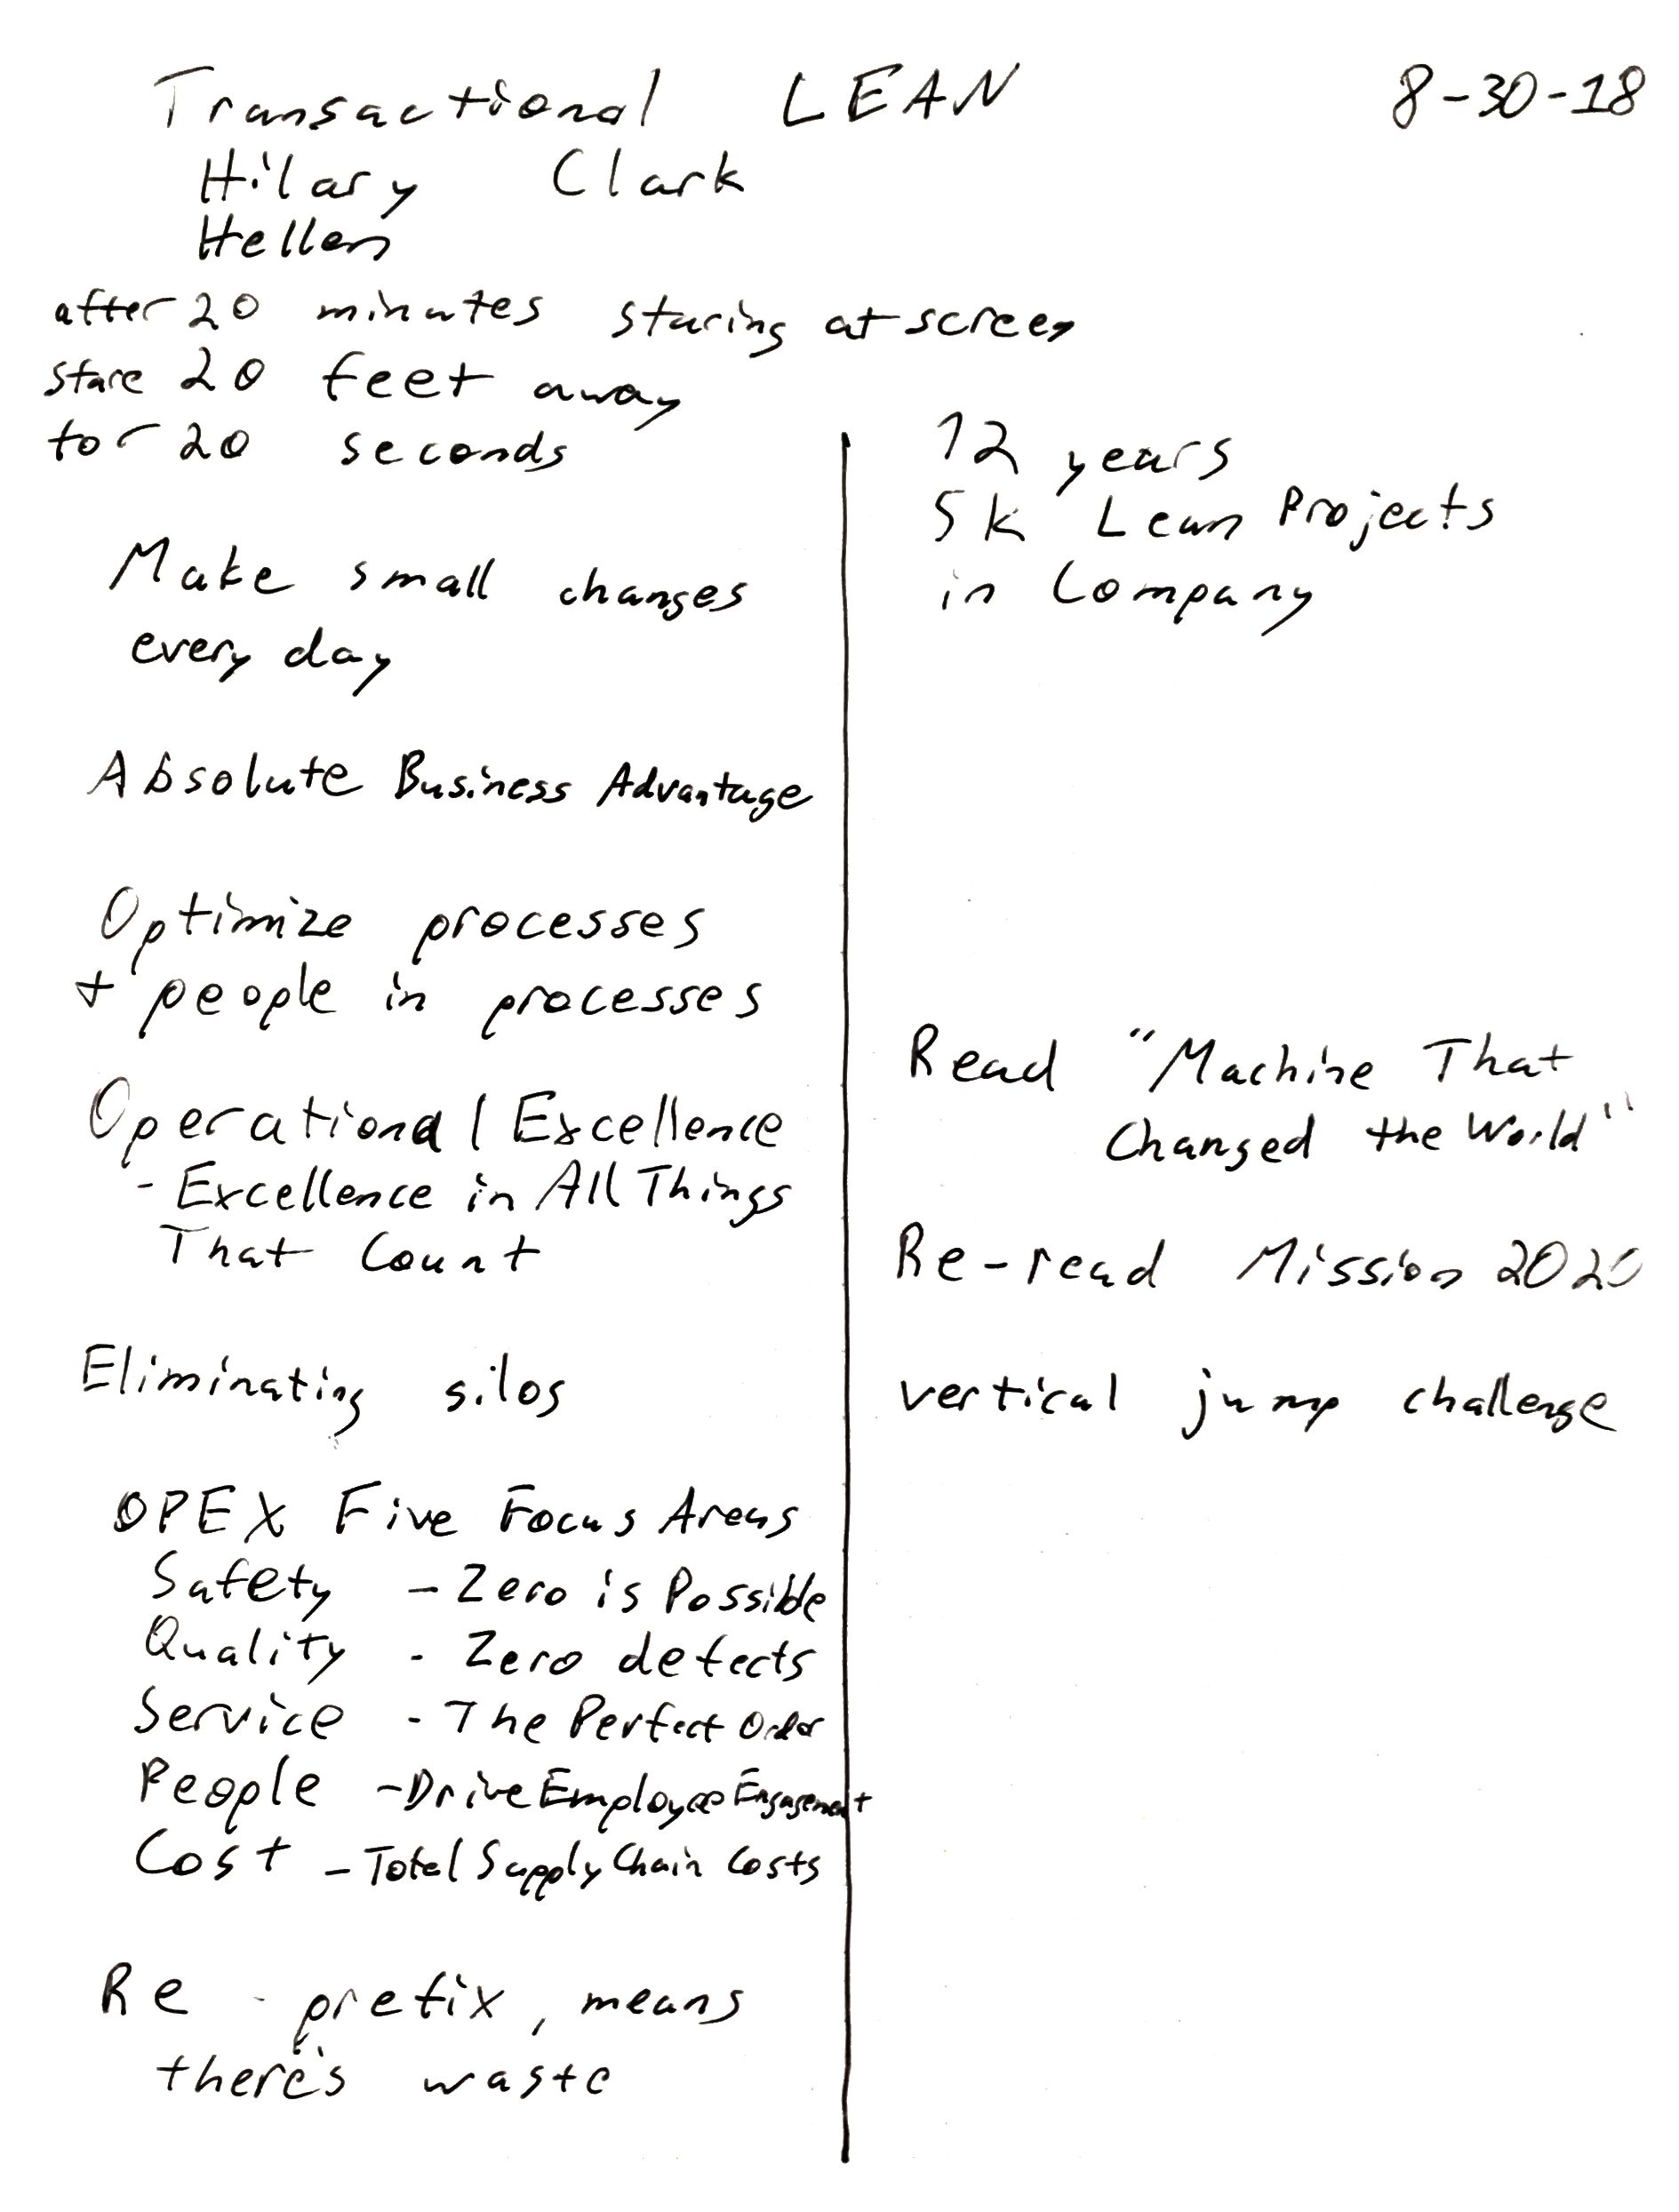 Transactional LEAN 8-30-18
Hilary Clark
Hellen
after 20 minutes staring at screen
stare 20 feet away
for 20 seconds
Make small changes
every day
Absolute Business Advantage
Optimize processes
+ people in processes
Operational Excellence
- Excellence in All Things
That Count
Eliminating silos
OPEX Five Focus Areas
Safety - Zero is Possible
Quality - Zero defects
Service - The Perfect Order
People - Drive Employee Engagement
Cost - Total Supply Chain Costs
Re - prefix, means
there's waste
12 years
5k Lean Projects
in Company
Read "Machine That
Changed the World"
Re-read Mission 2020
vertical jump challenge